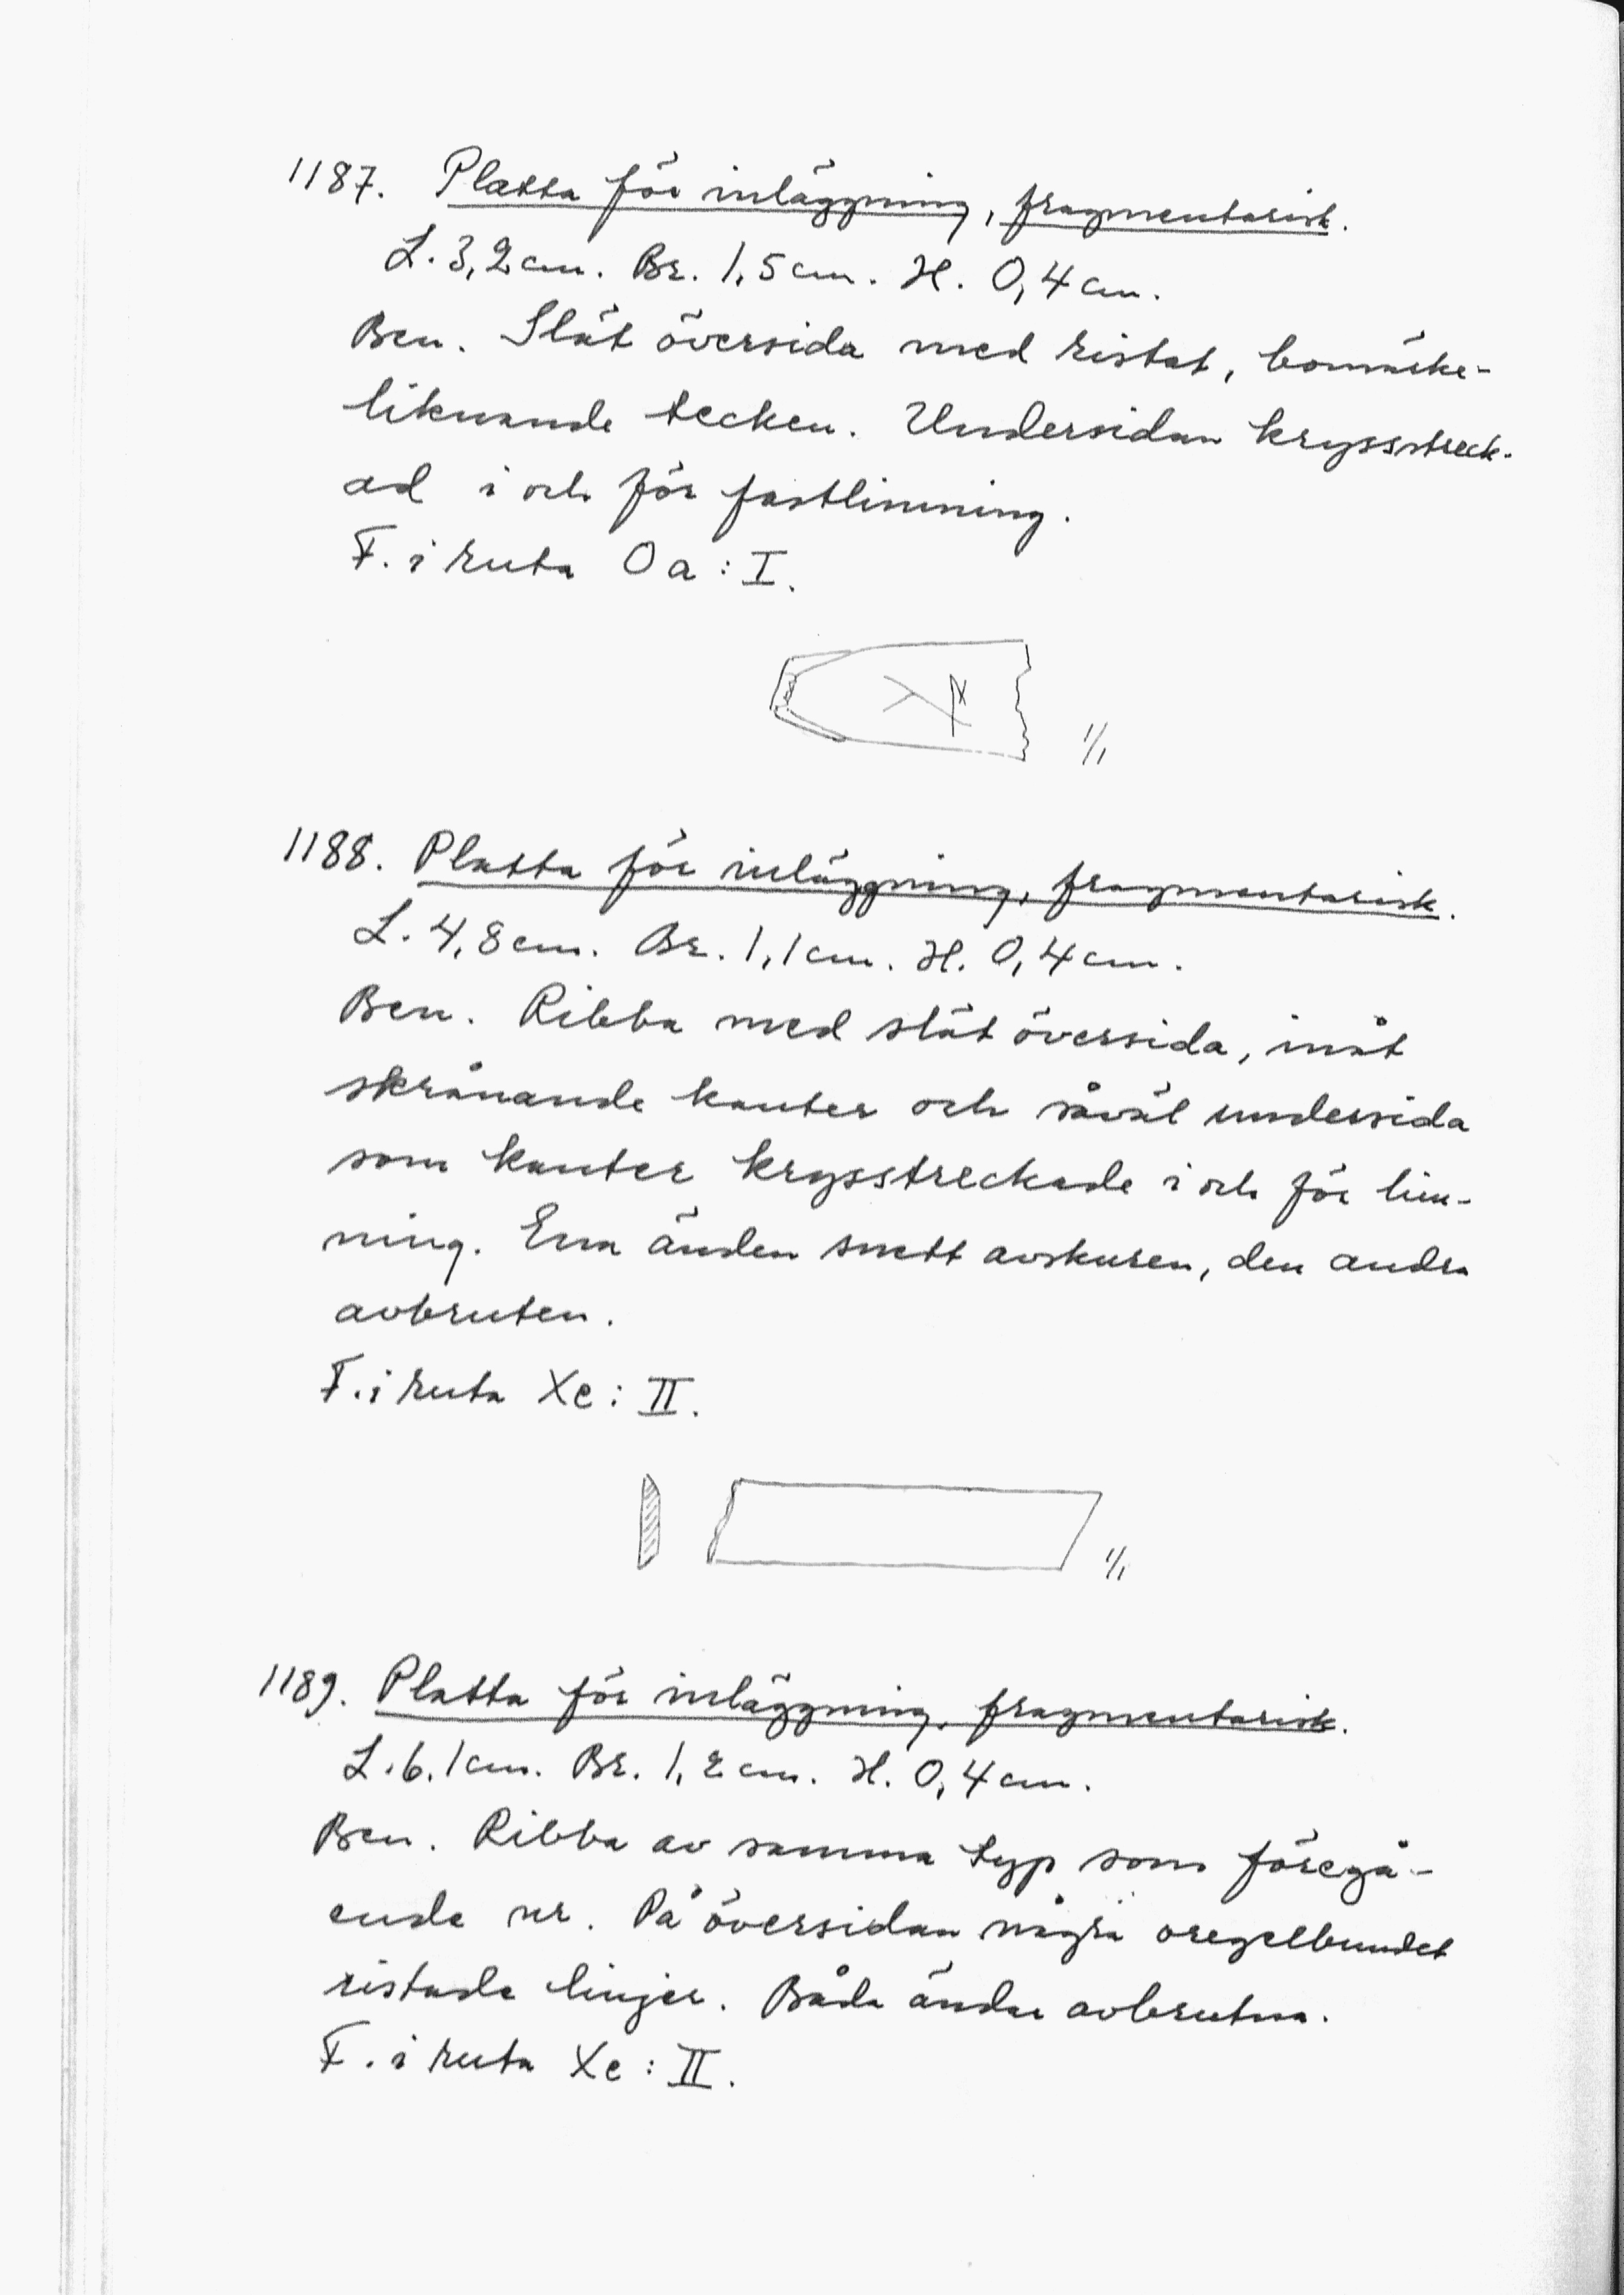 1187. Platta för inläggning, fragmentarisk.
L. 3,2 cm. Br. 1,5 cm. H. 0,4 cm.
Ben. Slät översida med ristat, bomärke-
liknande tecken. Undersidan krysstreck-
ad i och för fastlimning.
F. i ruta Oa: I.
1/1
1188. Platta för inläggning, fragmentarisk.
L. 4,8 cm. Br. 1,1 cm. H. 0,4 cm.
Ben. Ribba med slät översida, inåt
skrånande kanter och såväl undersida
som kanter krysstreckade i och för lim-
ning. Ena änden snett avskuren, den andra
avbruten.
F. i ruta Xe: II.
1/1
1189. Platta för inläggning, fragmentarisk.
L. 6,1 cm. Br. 1,2 cm. H. 0,4 cm.
Ben. Ribba av samma typ som föregå-
ende nr. På översidan några oregelbundet
ristade linjer. Båda ändar avbrutna.
F. i ruta Xe: II.